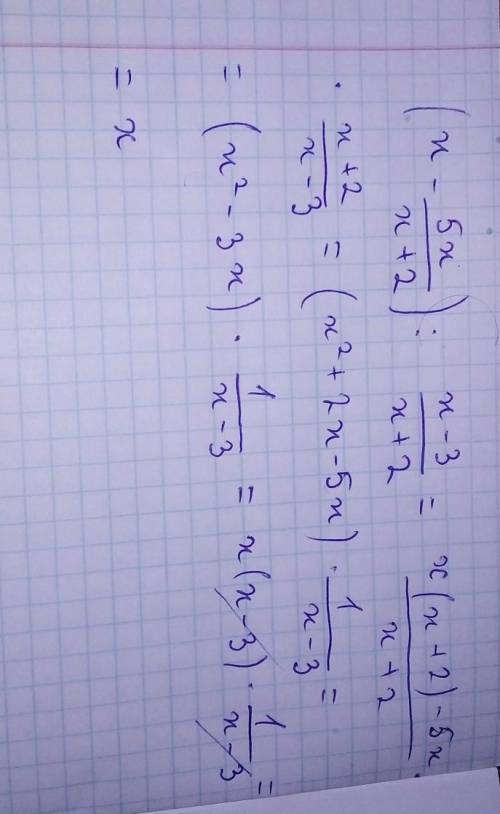 (x - 5x/(x+2)) : (x-3)/(x+2) = (x(x+2)-5x)/(x+2) ·
· (x+2)/(x-3) = (x²+2x-5x) · 1/(x-3) =
= (x²-3x) · 1/(x-3) = x(x-3) · 1/(x-3) =
= x